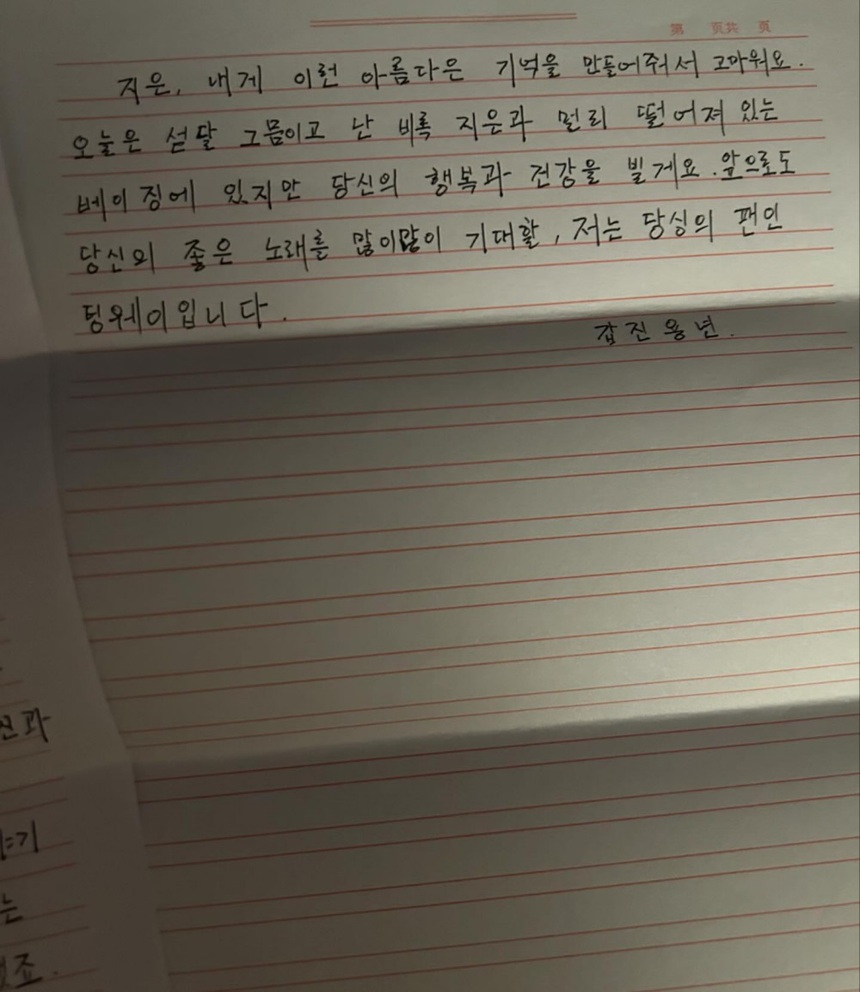 第 页共 页
지은, 내게 이런 아름다은 기억을 만들어줘서 고마워요.
오늘은 섣달 그믐이고 난 비록 지은과 멀리 떨어져 있는
베이징에 있지만 당신의 행복과 건강을 빌게요. 앞으로도
당신의 좋은 노래를 많이많이 기대할, 저는 당싱의 팬인
텅웨이입니다.
갑진용년.
신과
기
는
죠.